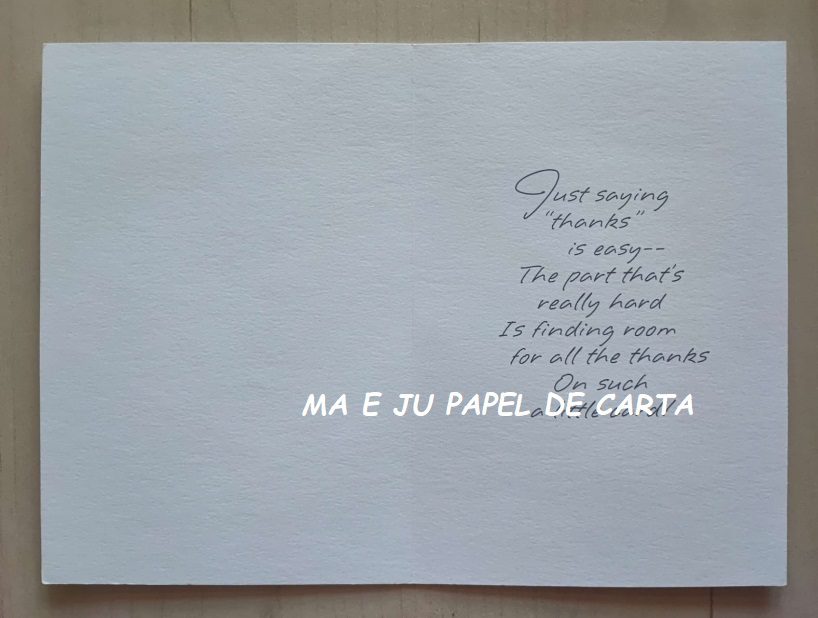 Just saying
"thanks"
is easy--
The part that's
really hard
Is finding room
for all the thanks
On such
a little card!
MA E JU PAPEL DE CARTA